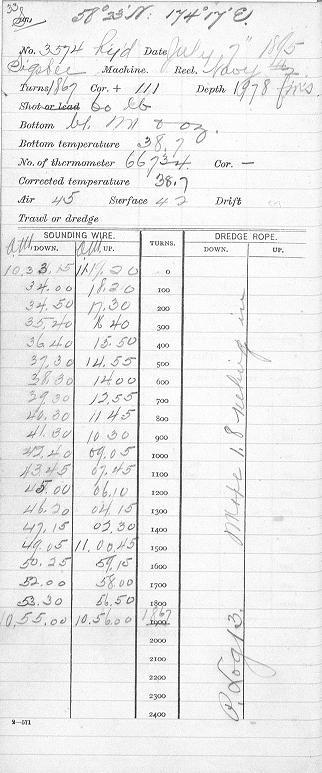 58° 23' N: 174° 17' E.
No. 3574 hyd Date July 2" 1895
Sigsbee Machine. Reel. Navy
Turns 1867 Cor. + 111 Depth 1978 fms.
Shot or lead 60 lb
Bottom bl. M & oz.
Bottom temperature 38.7
No. of thermometer 66734 Cor. —
Corrected temperature 38.7
Air 45 Surface 42 Drift
Trawl or dredge
SOUNDING WIRE. TURNS. DREDGE ROPE.
AM DOWN. AM UP. DOWN. UP.
10.33.15 11.19.20 0
34.00 18.20 100
34.50 17.30 200
35.40 16 40 300
36.40 15.50 400
37.30 14.55 500
38.30 14.00 600
39.30 12.55 700
40.30 11.45 800
41.30 10.30 900
42.40 09.05 1000
43.45 07.45 1100
45.00 06.10 1200
46.20 04.15 1300
47.15 02.30 1400
49.05 11.00.45 1500
50.25 59.15 1600
52.00 58.00 1700
53.30 56.50 1800
10.55.00 10.56.00 1867 1900
2000
2100
2200
2300
2400
P. Log 13. 1.8 reeling in
2—571